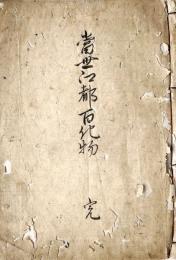 當世江都百化物 完